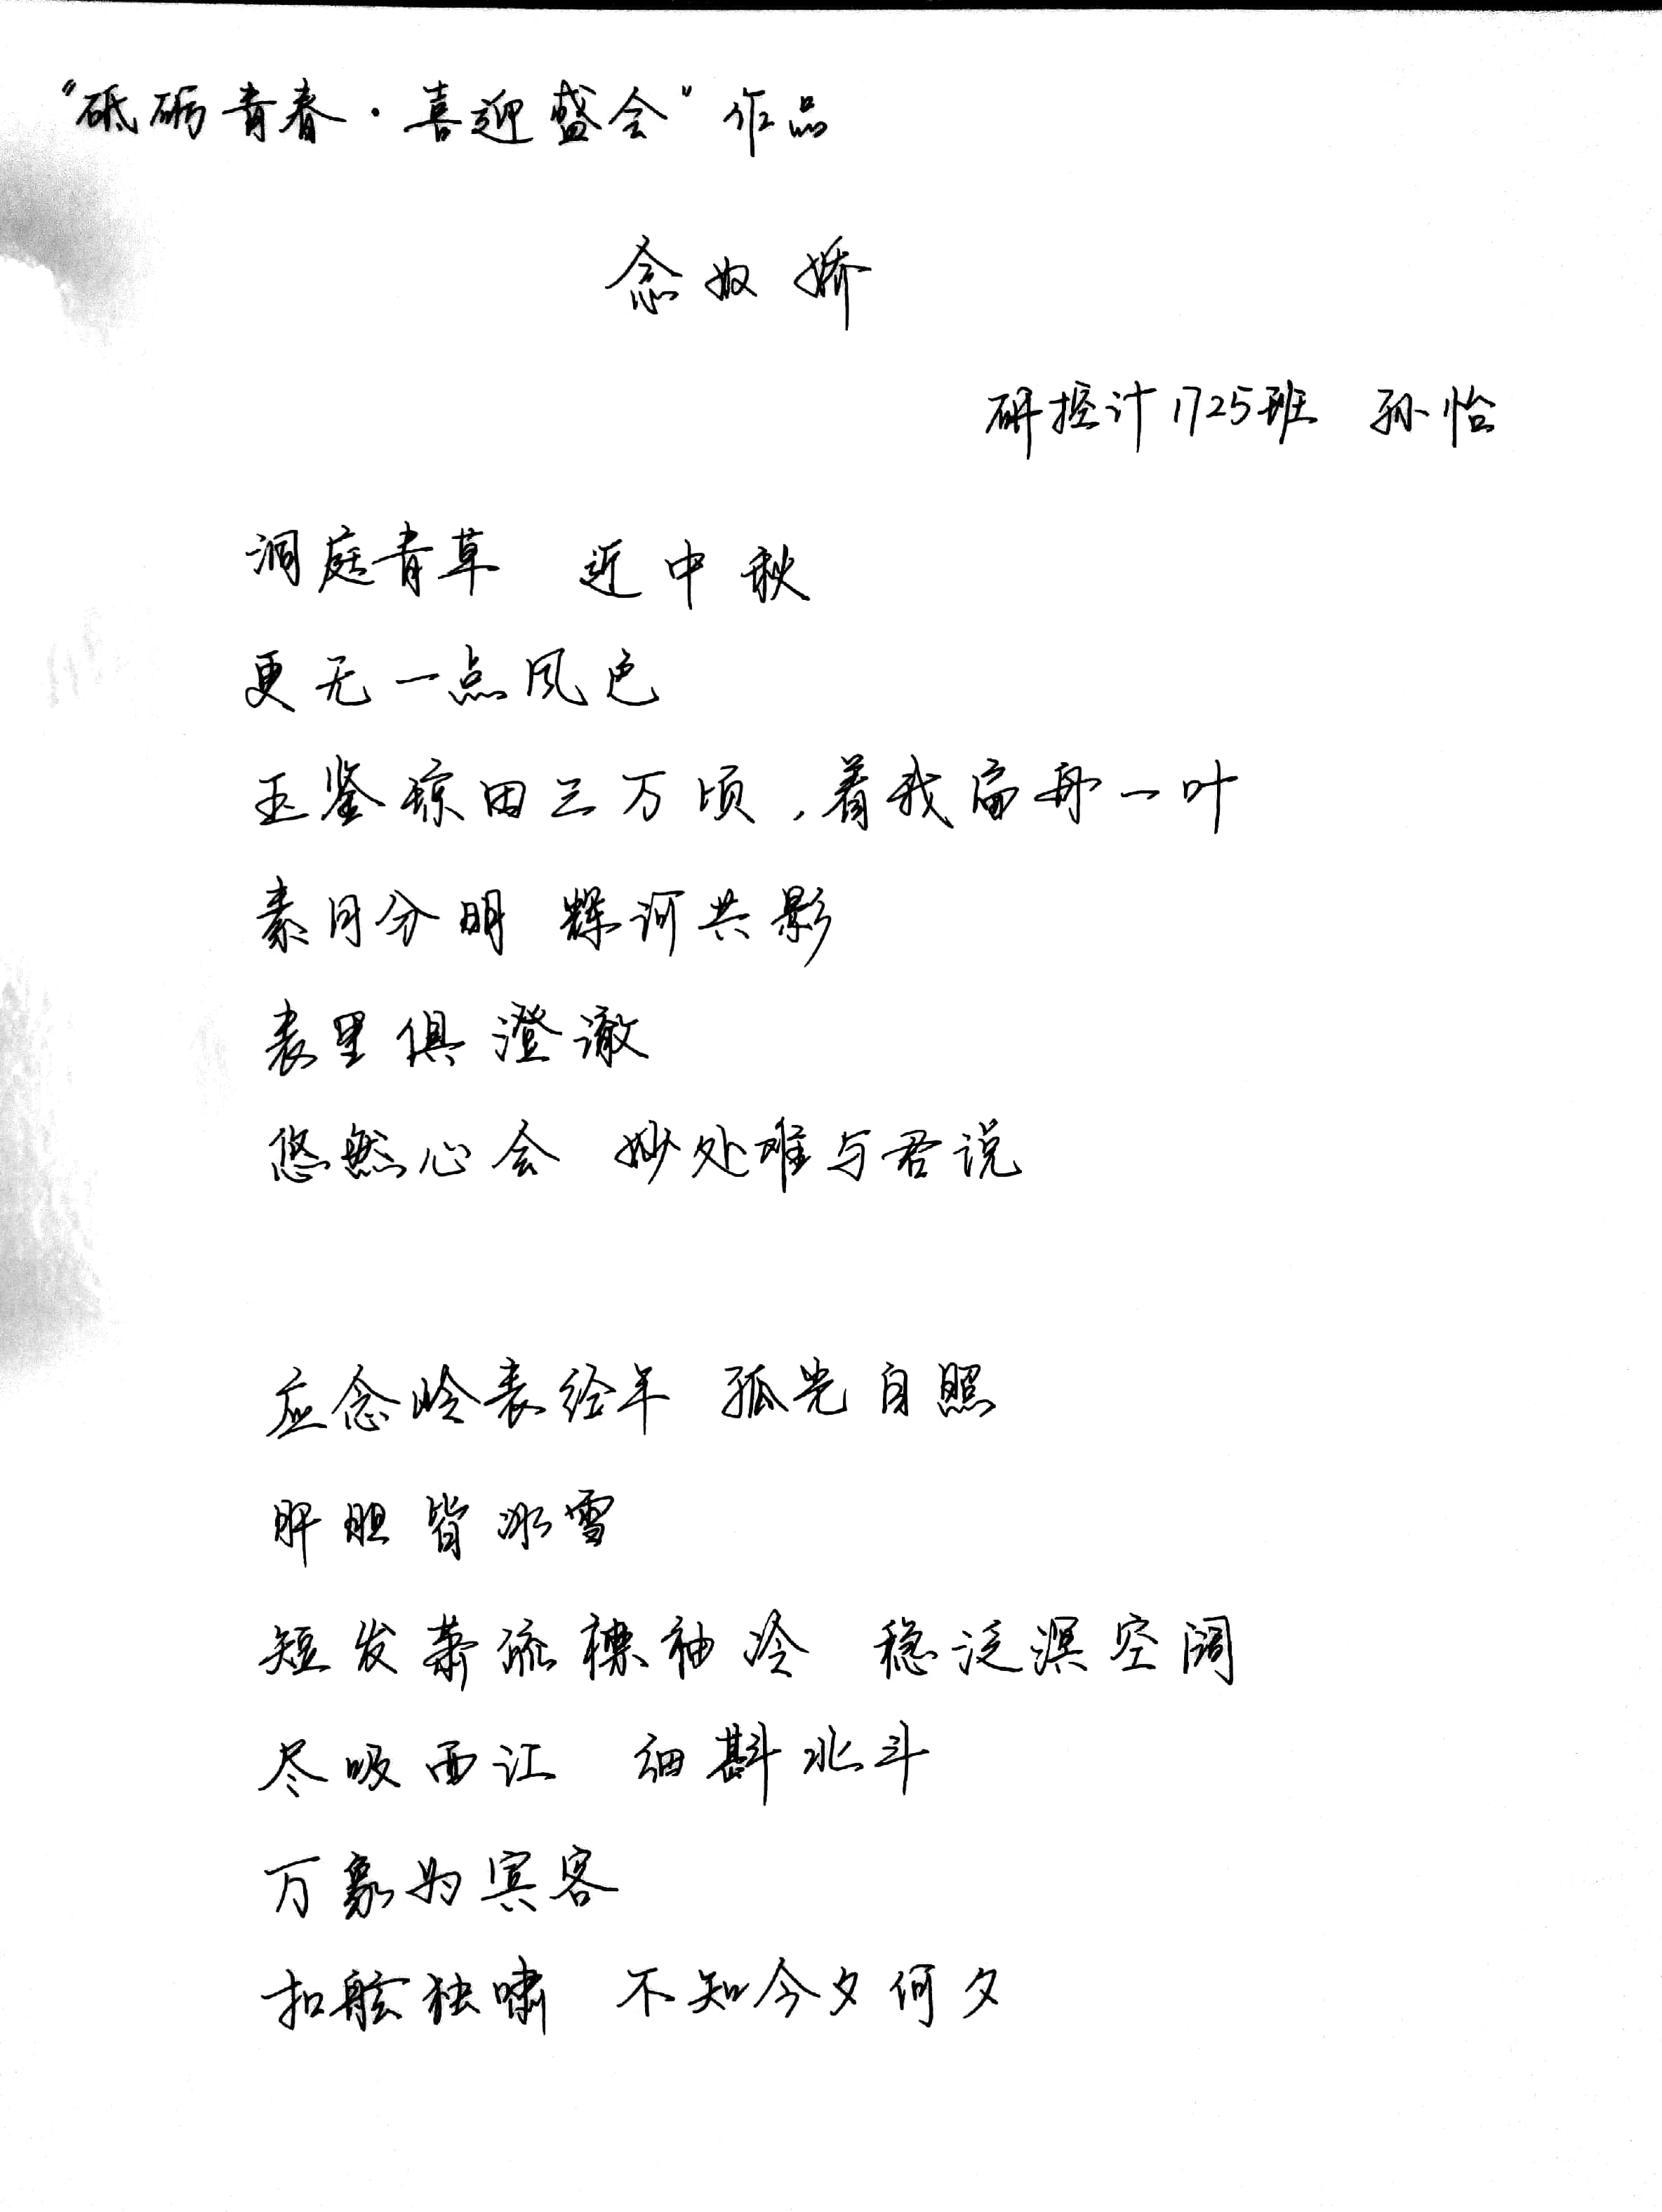 “砥砺青春·喜迎盛会”作品
念奴娇
研控计1725班 孙怡
洞庭青草 近中秋
更无一点风色
玉鉴琼田三万顷，着我扁舟一叶
素月分明 辉河共影
表里俱澄澈
悠然心会 妙处难与君说
应念岭表经年 孤光自照
肝胆皆冰雪
短发萧疏襟袖冷 稳泛溟空阔
尽吸西江 细斟北斗
万象为宾客
扣舷独啸 不知今夕何夕